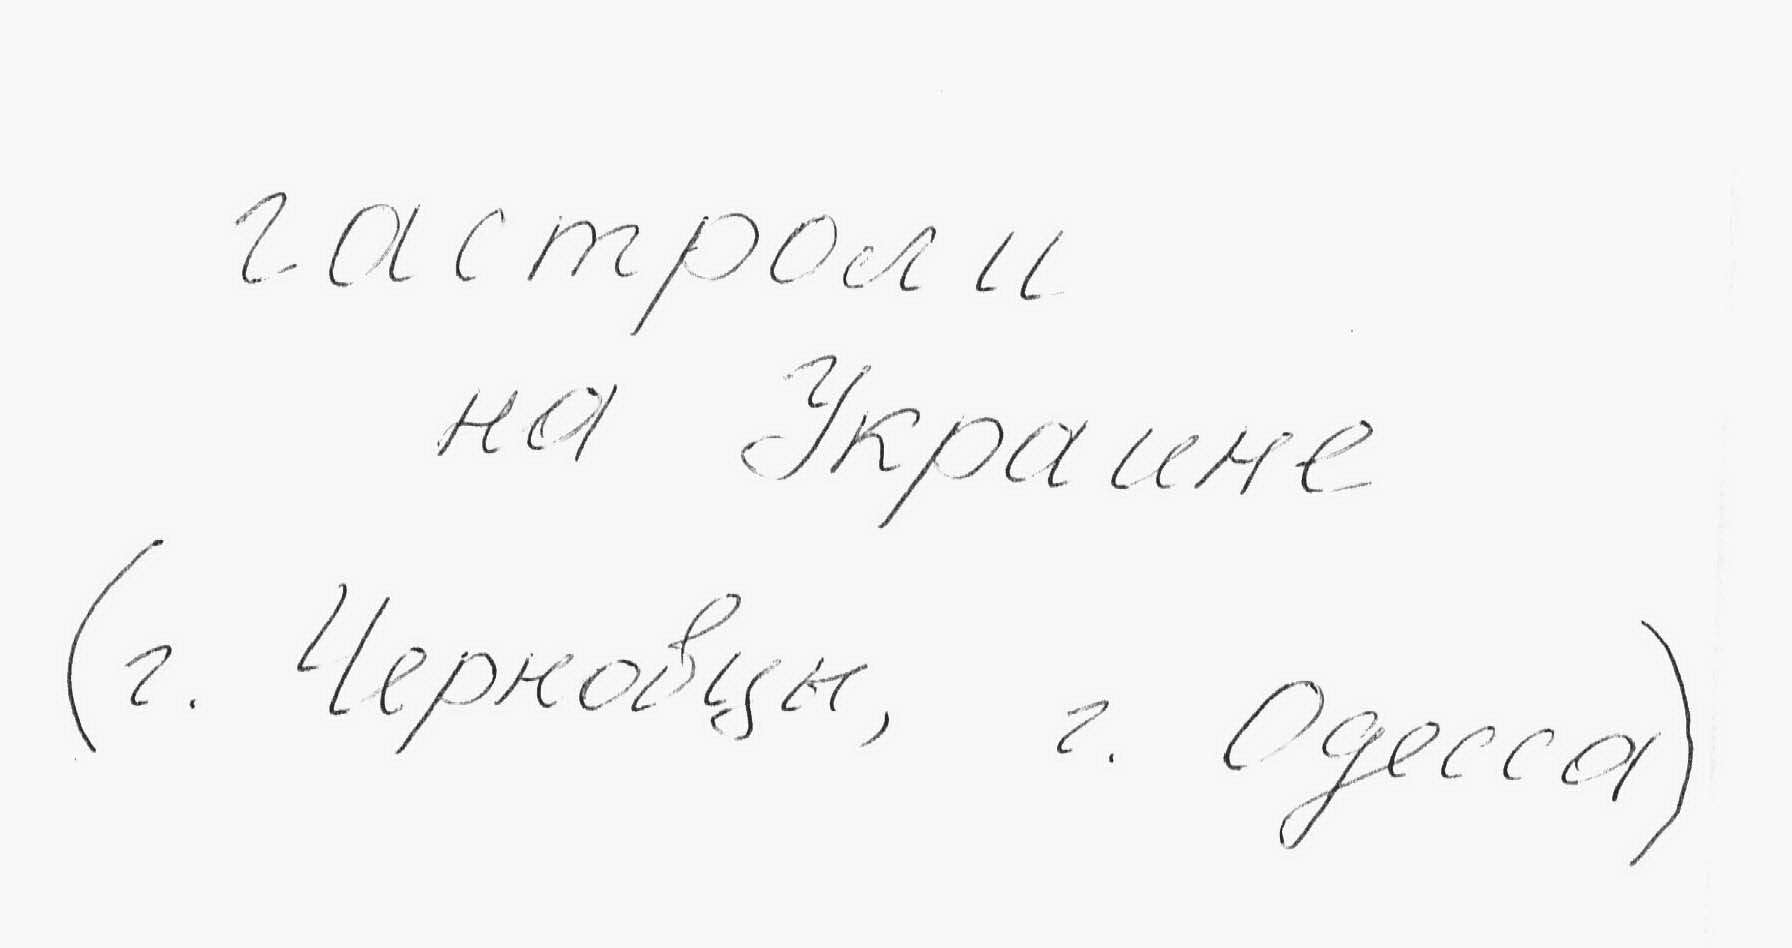 гастроли
на Украине
(г. Черновцы, г. Одесса)